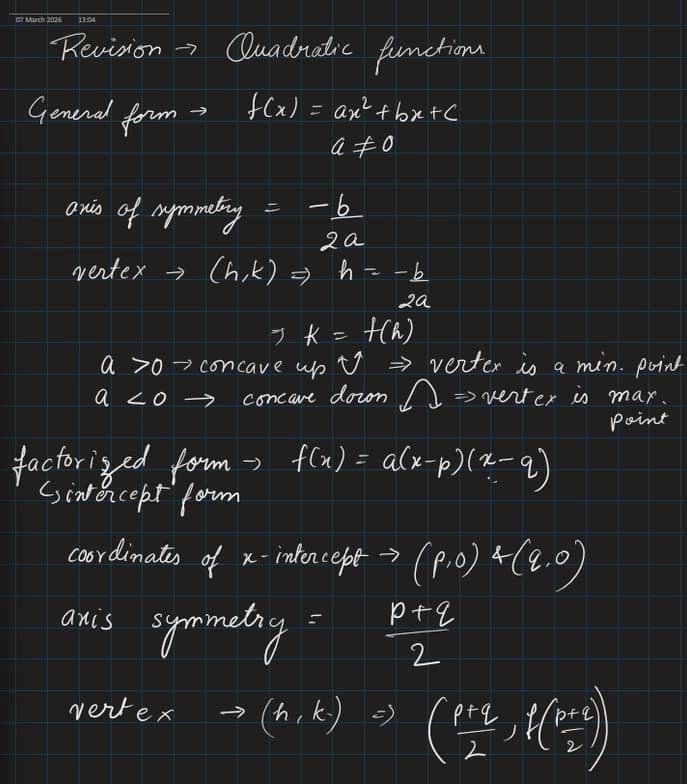 07 March 2026 13:04
Revision → Quadratic functions
General form → f(x) = ax² + bx + c
a ≠ 0
axis of symmetry = -b/2a
vertex → (h,k) ⇒ h = -b/2a
⇒ k = f(h)
a > 0 → concave up ⇒ vertex is a min. point
a < 0 → concave down ⇒ vertex is max. point
factorized form → f(x) = a(x-p)(x-q)
↳ intercept form
coordinates of x-intercept → (p,0) & (q,0)
axis symmetry = p+q/2
vertex → (h,k) ⇒ (p+q/2, f(p+q/2))